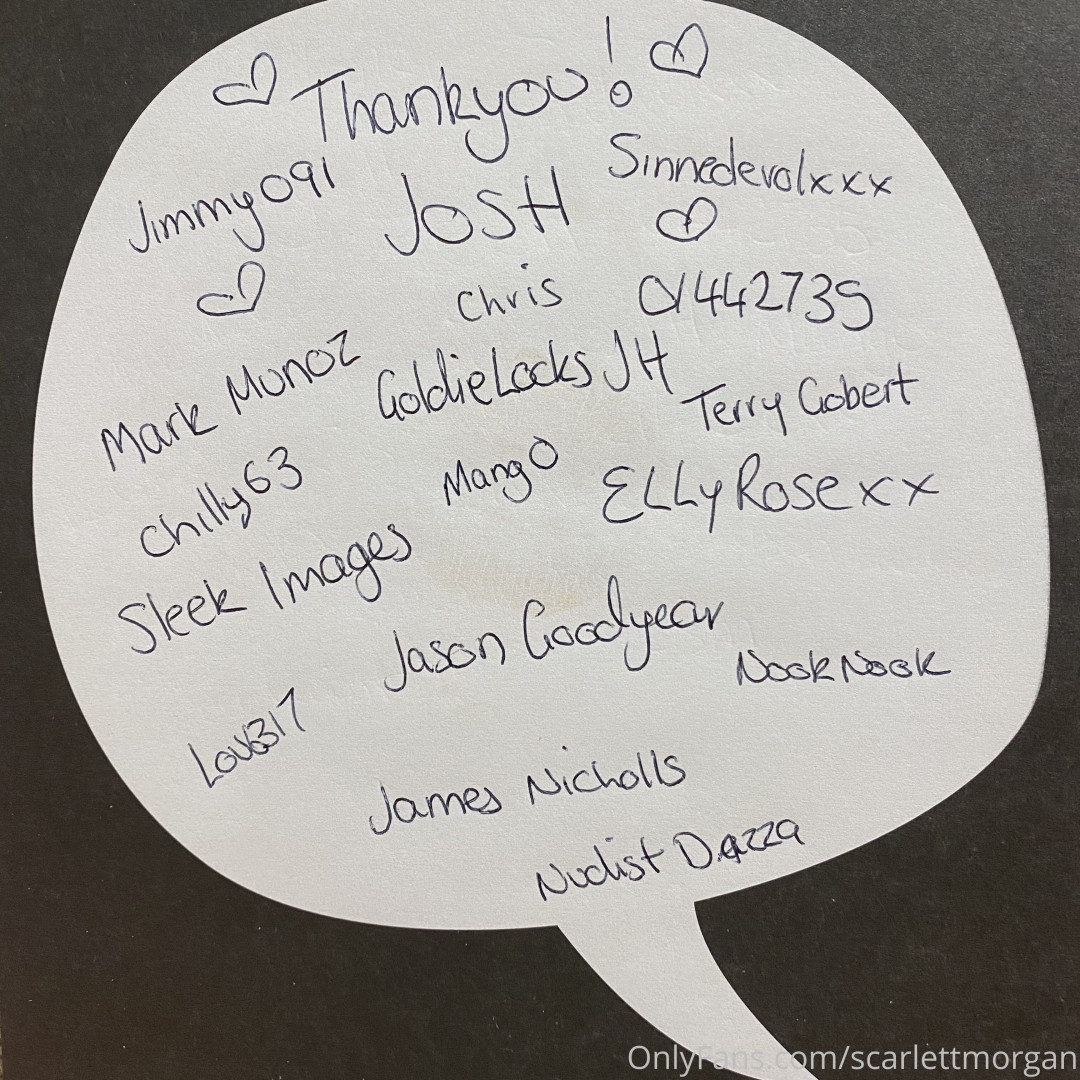 Thankyou!
Jimmy091
JOSH
Sinnedevolxxx
Chris
Mark Munoz
GoldieLocks JH
Terry Gobert
Chilly63
Mango
ELLyRosexx
Sleek Images
Jason Goodyear
NookNook
James Nicholls
Nudist Dazza
OnlyFans.com/scarlettmorgan